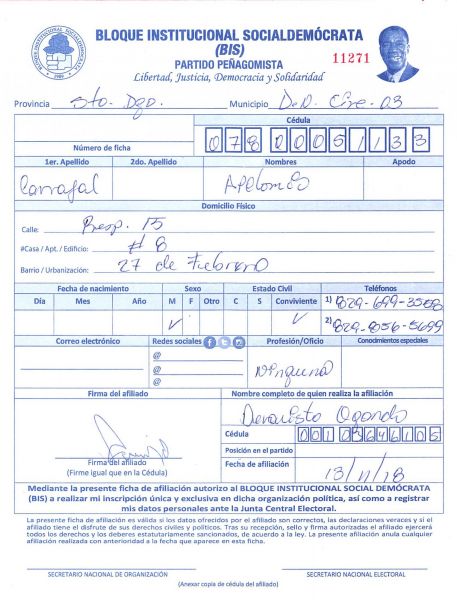 BLOQUE INSTITUCIONAL SOCIALDEMÓCRATA
(BIS)
PARTIDO PEÑAGOMISTA
11271
Libertad, Justicia, Democracia y Solidaridad
Provincia Sto. Dgo. Municipio D.N. Circ. 03
Cédula
Número de ficha 078 0005113 3
1er. Apellido 2do. Apellido Nombres Apodo
Carrafal Apolon
Domicilio Físico
Calle: Resp. 15
#Casa / Apt. / Edificio: # 8
Barrio / Urbanización: 27 de Febrero
Fecha de nacimiento Sexo Estado Civil Teléfonos
Día Mes Año M F Otro C S Conviviente 1) 829-699-3508
2) 829-856-5699
Correo electrónico Redes sociales Profesión/Oficio Conocimientos especiales
@
@
@
Ninguna
Firma del afiliado Nombre completo de quien realiza la afiliación
Ogando
Cédula 001 0364610 5
Posición en el partido
Firma del afiliado
(Firme igual que en la Cédula)
Fecha de afiliación 13/11/18
Mediante la presente ficha de afiliación autorizo al BLOQUE INSTITUCIONAL SOCIAL DEMÓCRATA
(BIS) a realizar mi inscripción única y exclusiva en dicha organización política, así como a registrar
mis datos personales ante la Junta Central Electoral.
La presente ficha de afiliación es válida si los datos ofrecidos por el afiliado son correctos, las declaraciones veraces y si el
afiliado tiene el disfrute de sus derechos civiles y políticos. Tras su recepción, sello y firma autorizadas el afiliado ejercerá
todos los derechos y los deberes estatutariamente sancionados, de acuerdo a la ley. La presente afiliación anula cualquier
afiliación realizada con anterioridad a la fecha que aparece en esta ficha.
SECRETARIO NACIONAL DE ORGANIZACIÓN SECRETARIO NACIONAL ELECTORAL
(Anexar copia de cédula del afiliado)